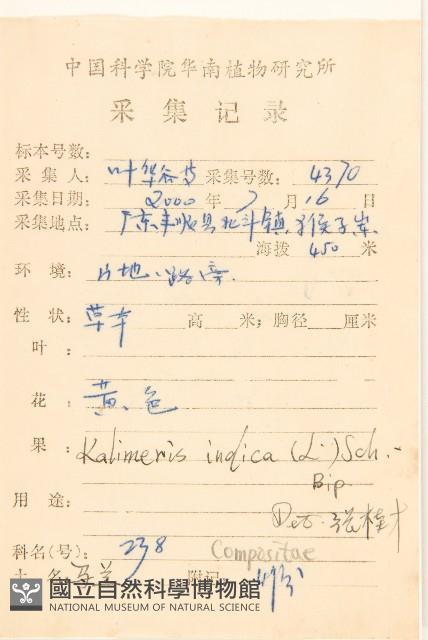 中国科学院华南植物研究所
采集记录
标本号数:
采集人: 叶华谷 采集号数: 4370
采集日期: 2000 年 7 月 16 日
采集地点: 广东丰顺县北斗镇猴子岽
海拨 450 米
环境: 路旁.
性状: 草本 高 米; 胸径 厘米
叶:
花: 黄色
果: Kalimeris indica (L.) Sch.-
Bip.
用途: Det. 张桂才
科名(号): 238 Compositae
土名: 马兰 附记:
國立自然科學博物館
NATIONAL MUSEUM OF NATURAL SCIENCE